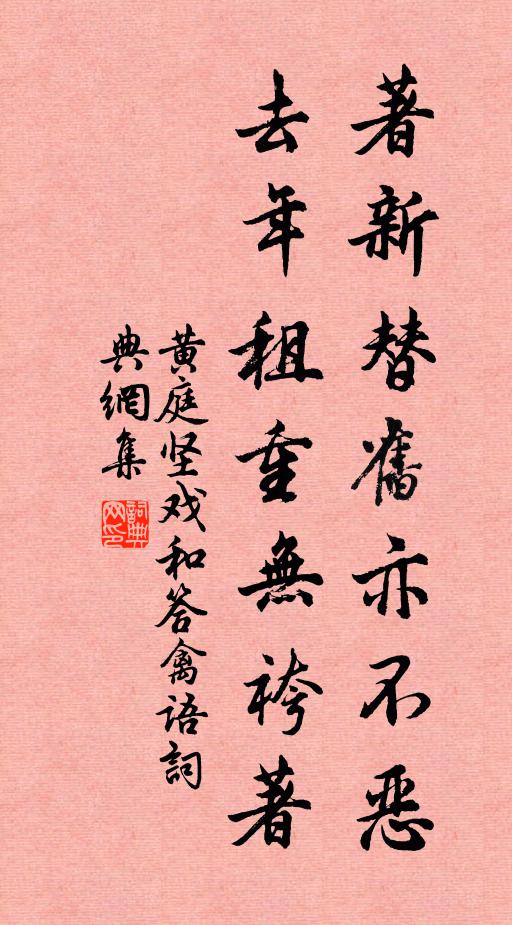 著新替舊亦不惡
去年租重無袴著
黄庭坚戏和答禽语詞
典網集
詞典网印